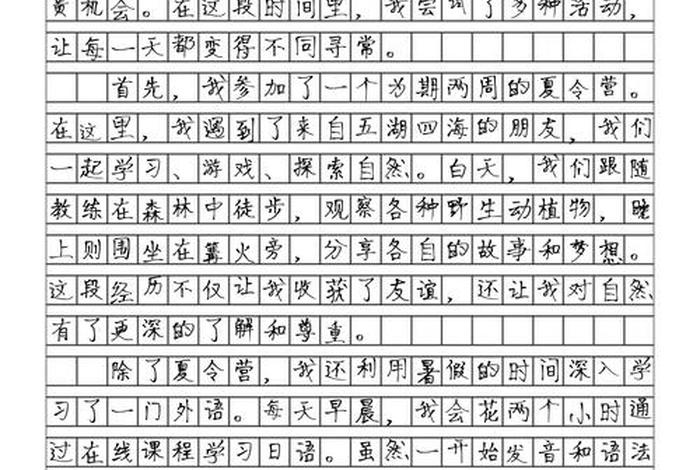 贵机会。在这段时间里，我尝试了多种活动，
让每一天都变得不同寻常。
首先，我参加了一个为期两周的夏令营。
在这里，我遇到了来自五湖四海的朋友，我们
一起学习、游戏、探索自然。白天，我们跟随
教练在森林中徒步，观察各种野生动植物，晚
上则围坐在篝火旁，分享各自的故事和梦想。
这段经历不仅让我收获了友谊，还让我对自然
有了更深的了解和尊重。
除了夏令营，我还利用暑假的时间深入学
习了一门外语。每天早晨，我会花两个小时通
过在线课程学习日语。虽然一开始发音和语法